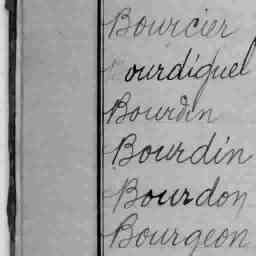 Bourcier
Bourdiguel
Bourdin
Bourdin
Bourdon
Bourgeon